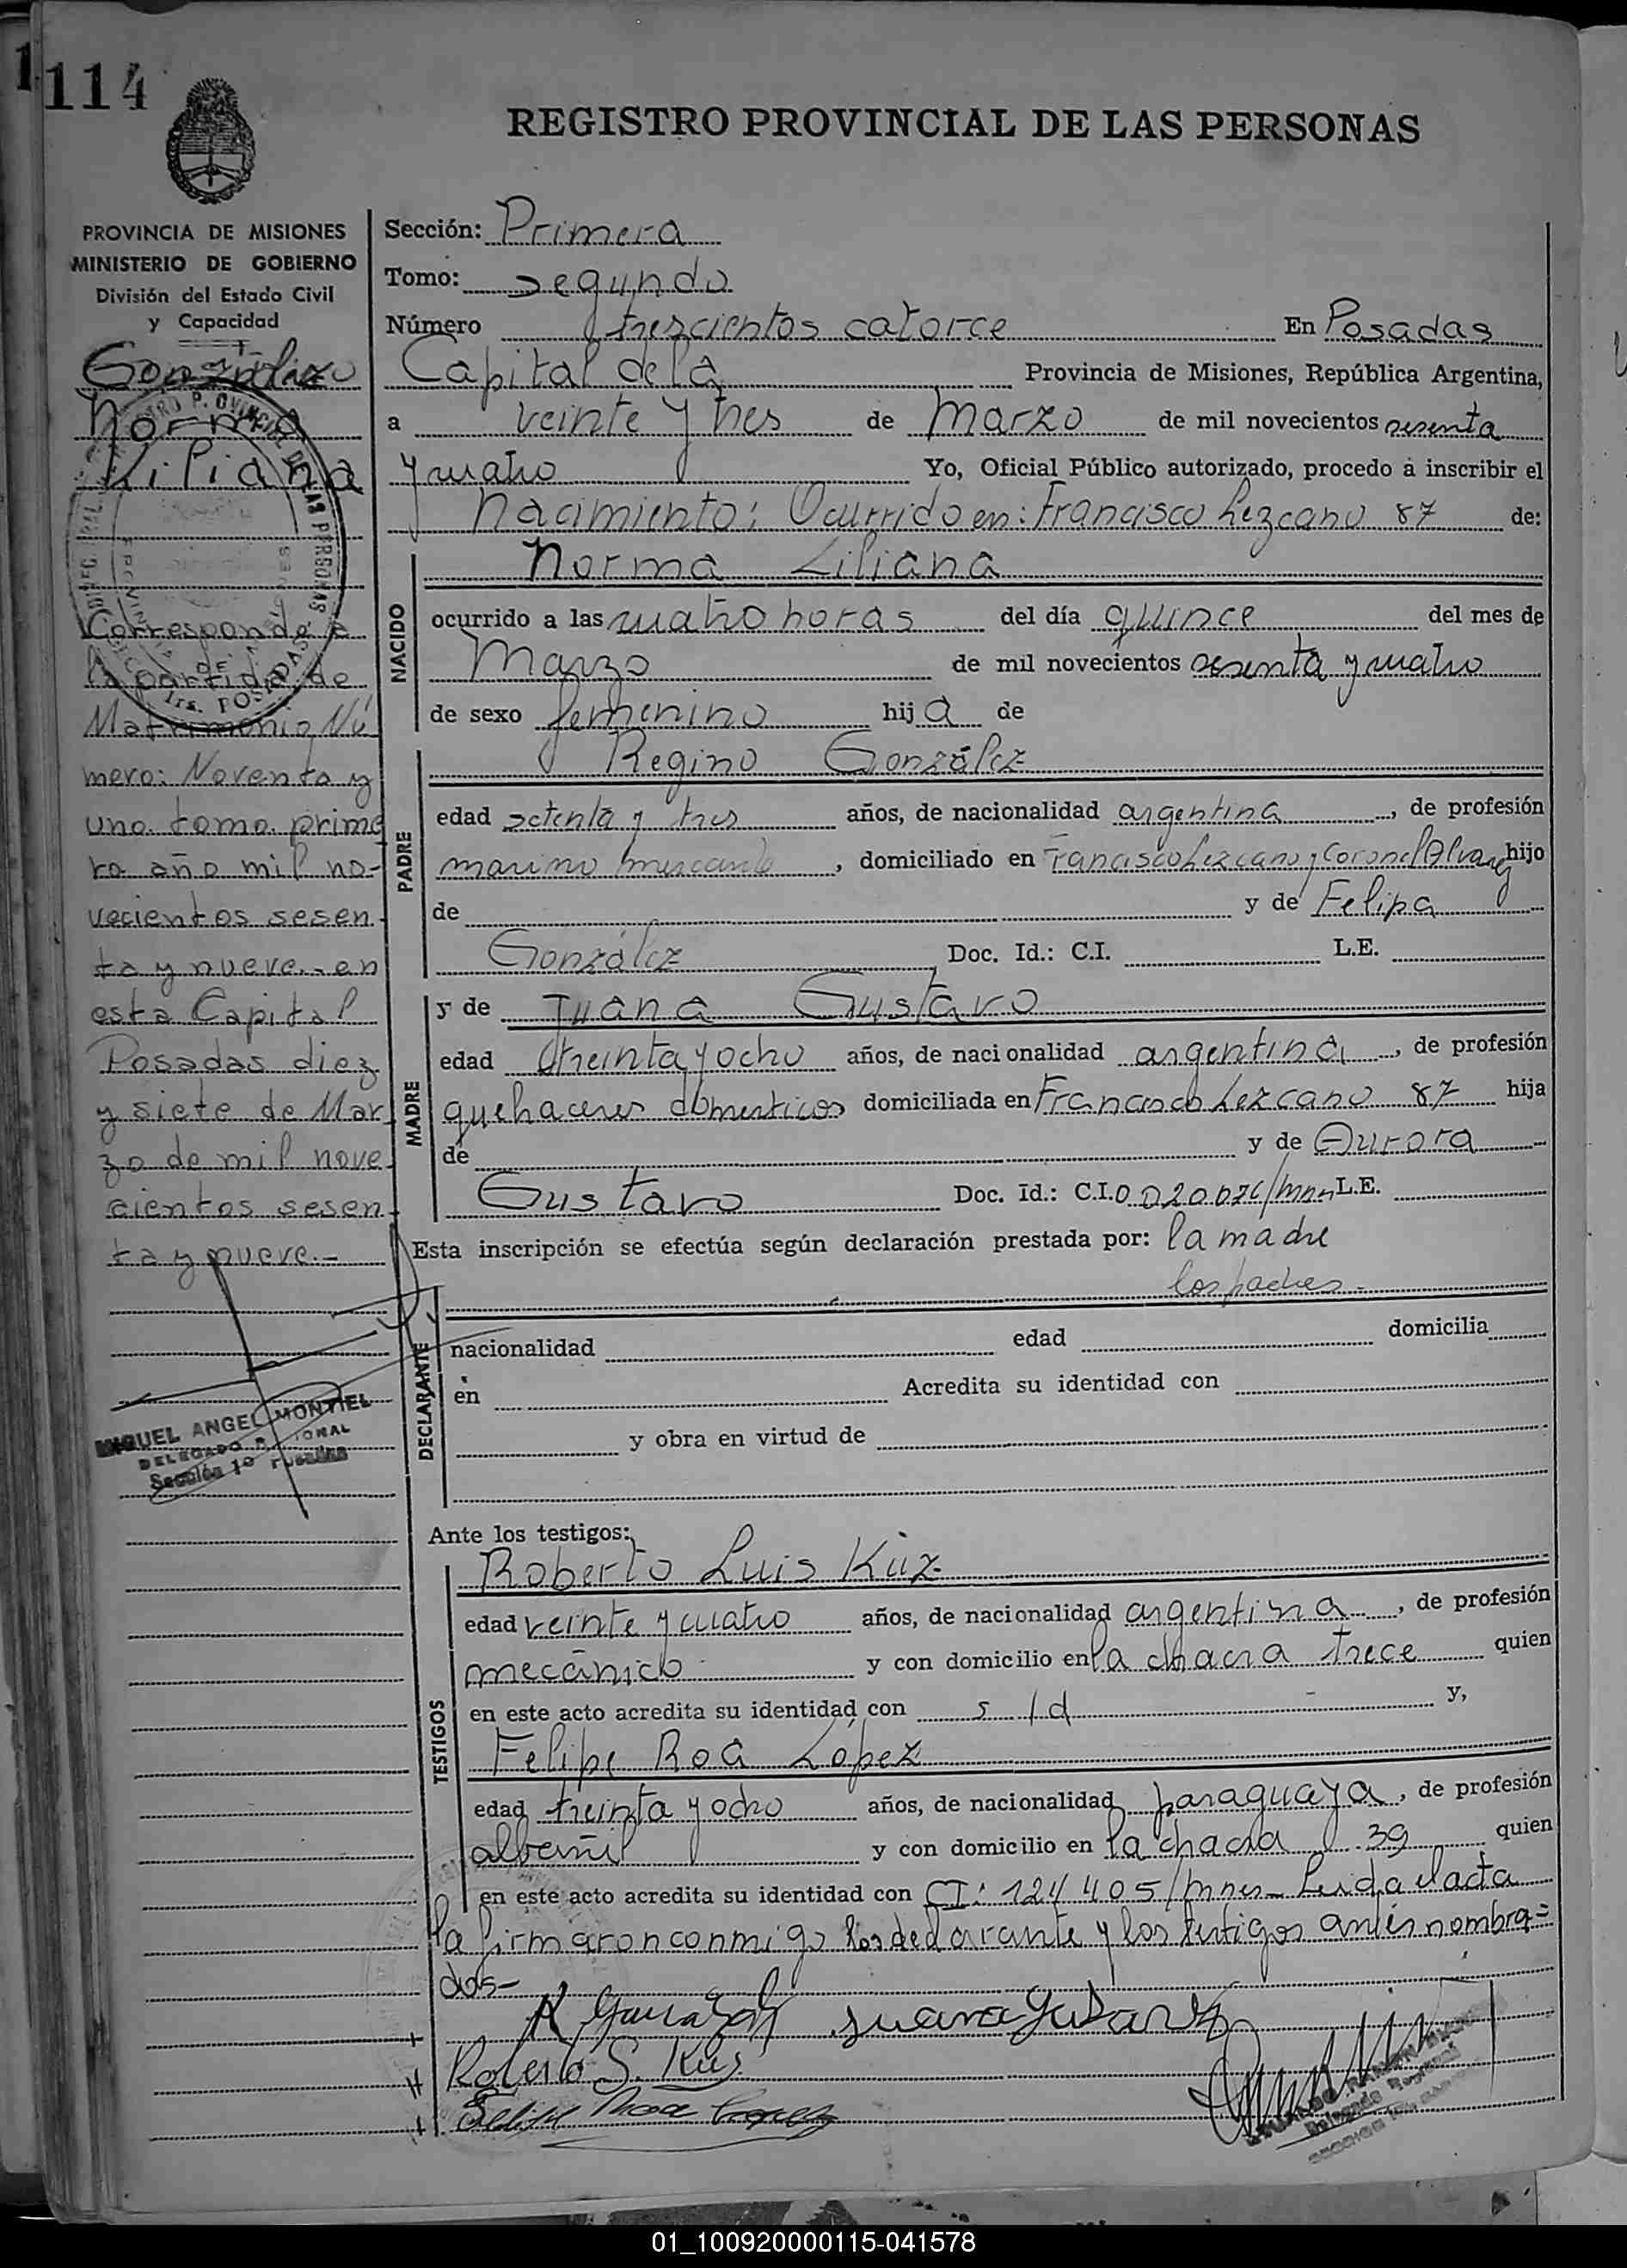 114
REGISTRO PROVINCIAL DE LAS PERSONAS
PROVINCIA DE MISIONES
MINISTERIO DE GOBIERNO
División del Estado Civil
y Capacidad
González
Norma
Liliana
Corresponde a
la partida de
Matrimonio Nú
mero: Noventa y
uno tomo prime
ro año mil no-
vecientos sesen
ta y nueve.- en
esta Capital
Posadas diez
y siete de Mar
zo de mil nove
cientos sesen
ta y nueve.-
MIGUEL ANGEL MONTIEL
DELEGADO REGIONAL
Sección 1º Posadas
Sección: Primera
Tomo: segundo
Número trescientos catorce En Posadas
Capital de la Provincia de Misiones, República Argentina,
a veinte y tres de Marzo de mil novecientos sesenta
y cuatro Yo, Oficial Público autorizado, procedo a inscribir el
Nacimiento: Ocurrido en: Francisco Lezcano 87 de:
NACIDO
Norma Liliana
ocurrido a las cuatro horas del día quince del mes de
Marzo de mil novecientos sesenta y cuatro
de sexo femenino hija de
PADRE
Regino González
edad setenta y tres años, de nacionalidad argentina, de profesión
marino mercante, domiciliado en Francisco Lezcano y Coronel Alvarez hijo
de y de Felipa
González Doc. Id.: C.I. L.E.
MADRE
y de Juana Gustavo
edad treinta y ocho años, de nacionalidad argentina, de profesión
quehaceres domesticos domiciliada en Francisco Lezcano 87 hija
de y de Aurora
Gustavo Doc. Id.: C.I. L.E.
Esta inscripción se efectúa según declaración prestada por: la madre
los padres.-
DECLARANTE
nacionalidad edad domicilia
en Acredita su identidad con
y obra en virtud de
Ante los testigos:
TESTIGOS
Roberto Luis Küz
edad veinte y cuatro años, de nacionalidad argentina, de profesión
mecánico y con domicilio en la chacra trece quien
en este acto acredita su identidad con s/d y,
Felipe Roa López
edad treinta y ocho años, de nacionalidad paraguaya, de profesión
albañil y con domicilio en la chacra 39 quien
en este acto acredita su identidad con CI: 124405/mnes- Leida el acta
la firmaron conmigo los declarante y los testigos antes nombra=
dos-
R González Juana Gustavo
Roberto S. Küz
Felipe Roa Lopez
Delegado Regional
01_100920000115-041578